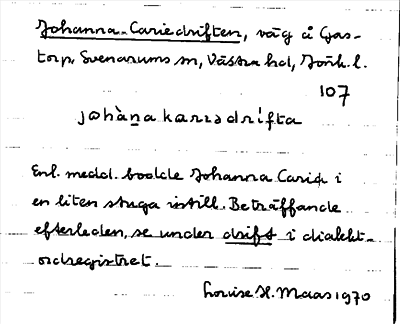 Johanna-Cariedriften, väg å Gas-
torp, Svenarums sn, Västra hd, Jönk. l.
107
johàna karrədrífta
Enl. medd. bodde Johanna Carié i
en liten stuga intill. Beträffande
efterleden, se under drift i dialekt-
ordregistret.
Louise H. Maas 1970